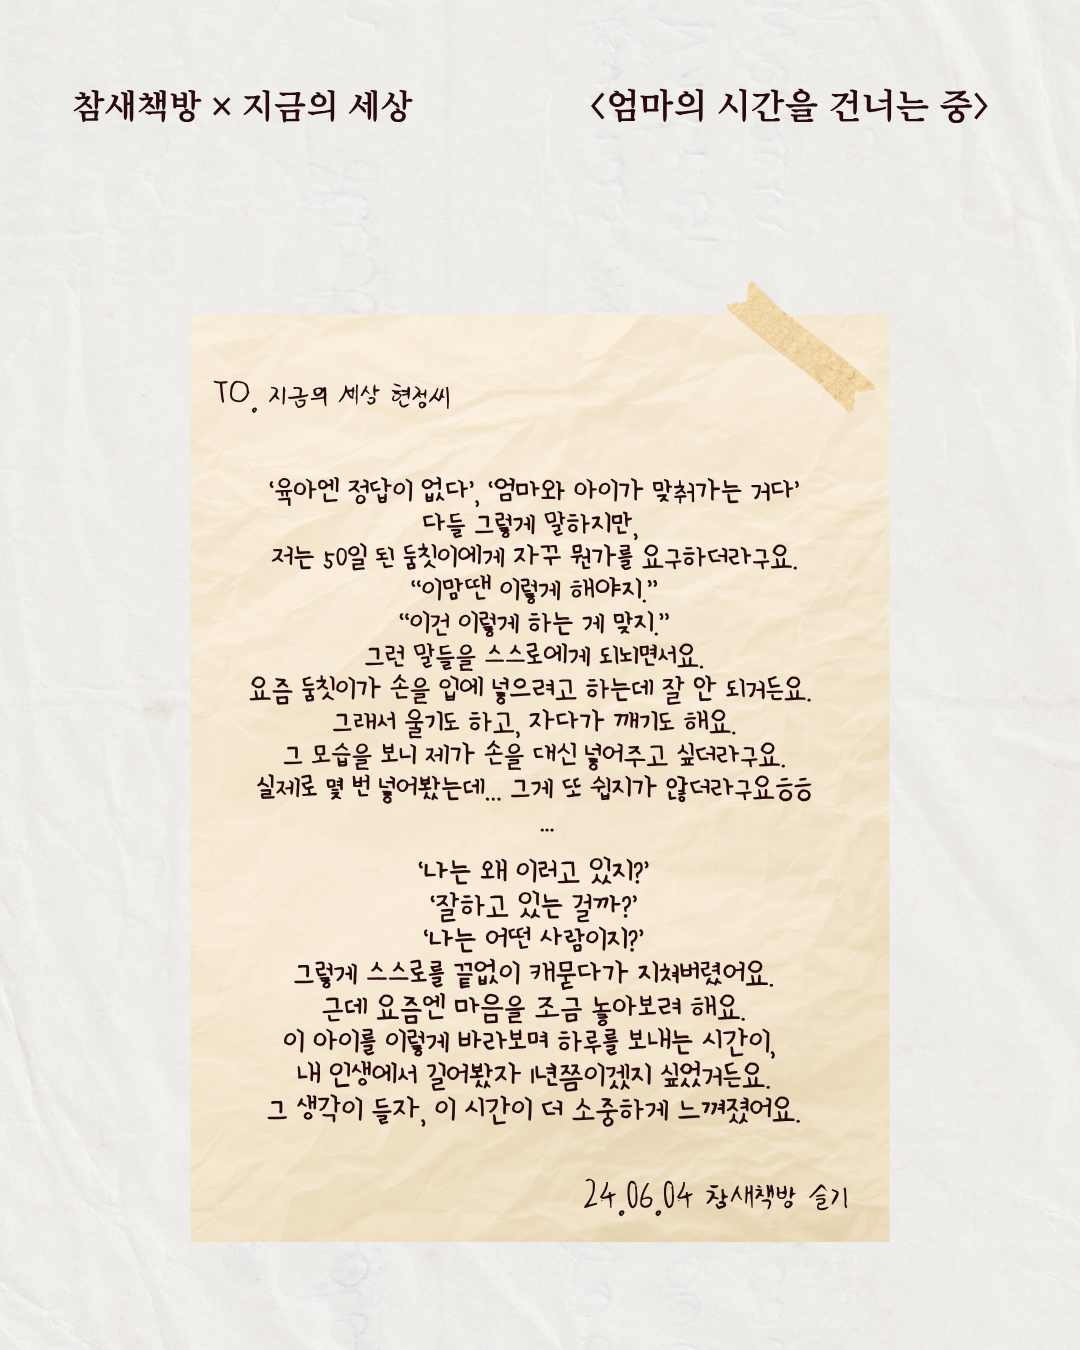 참새책방 × 지금의 세상
<엄마의 시간을 건너는 중>
TO. 지금의 세상 현정씨
‘육아엔 정답이 없다’, ‘엄마와 아이가 맞춰가는 거다’
다들 그렇게 말하지만,
저는 50일 된 둠칫이에게 자꾸 뭔가를 요구하더라구요.
“이맘땐 이렇게 해야지.”
“이건 이렇게 하는 게 맞지.”
그런 말들을 스스로에게 되뇌면서요.
요즘 둠칫이가 손을 입에 넣으려고 하는데 잘 안 되거든요.
그래서 울기도 하고, 자다가 깨기도 해요.
그 모습을 보니 제가 손을 대신 넣어주고 싶더라구요.
실제로 몇 번 넣어봤는데... 그게 또 쉽지가 않더라구요ㅎㅎ
...
‘나는 왜 이러고 있지?’
‘잘하고 있는 걸까?’
‘나는 어떤 사람이지?’
그렇게 스스로를 끝없이 캐묻다가 지쳐버렸어요.
근데 요즘엔 마음을 조금 놓아보려 해요.
이 아이를 이렇게 바라보며 하루를 보내는 시간이,
내 인생에서 길어봤자 1년쯤이겠지 싶었거든요.
그 생각이 들자, 이 시간이 더 소중하게 느껴졌어요.
24.06.04 참새책방 슬기